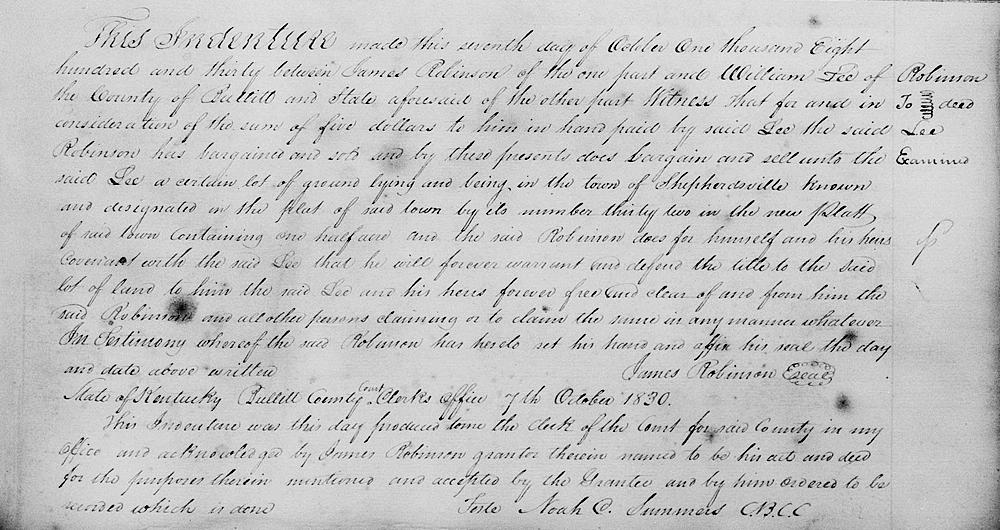 This Indenture made this seventh day of October One thousand Eight
hundred and thirty between James Robinson of the one part and William Lee of
the County of Bullitt and State aforesaid of the other part Witness That for and in
consideration of the sum of five dollars to him in hand paid by said Lee the said
Robinson has bargained and sold and by these presents does bargain and sell unto the
said Lee a certain lot of ground lying and being in the town of Shepherdsville known
and designated in the plat of said town by its number thirty two in the new Platt
of said town Containing one half acre and the said Robinson does for himself and his heirs
Covenant with the said Lee that he will forever warrant and defend the title to the said
lot of land to him the said Lee and his heirs forever free and clear of and from him the
said Robinson and all other persons claiming or to claim the same in any manner whatever
In Testimony whereof the said Robinson has hereto set his hand and affix his seal the day
and date above written
James Robinson Seal
State of Kentucky Bullitt County Court Clerks office 7th October 1830.
This Indenture was this day produced to me the clerk of the Court for said County in my
office and acknowledged by James Robinson grantor therein named to be his act and deed
for the purposes therein mentioned and accepted by the Grantee and by him ordered to be
recorded which is done
Teste Noah C. Summers C.B.C.C
Robinson
To deed
Lee
Examined